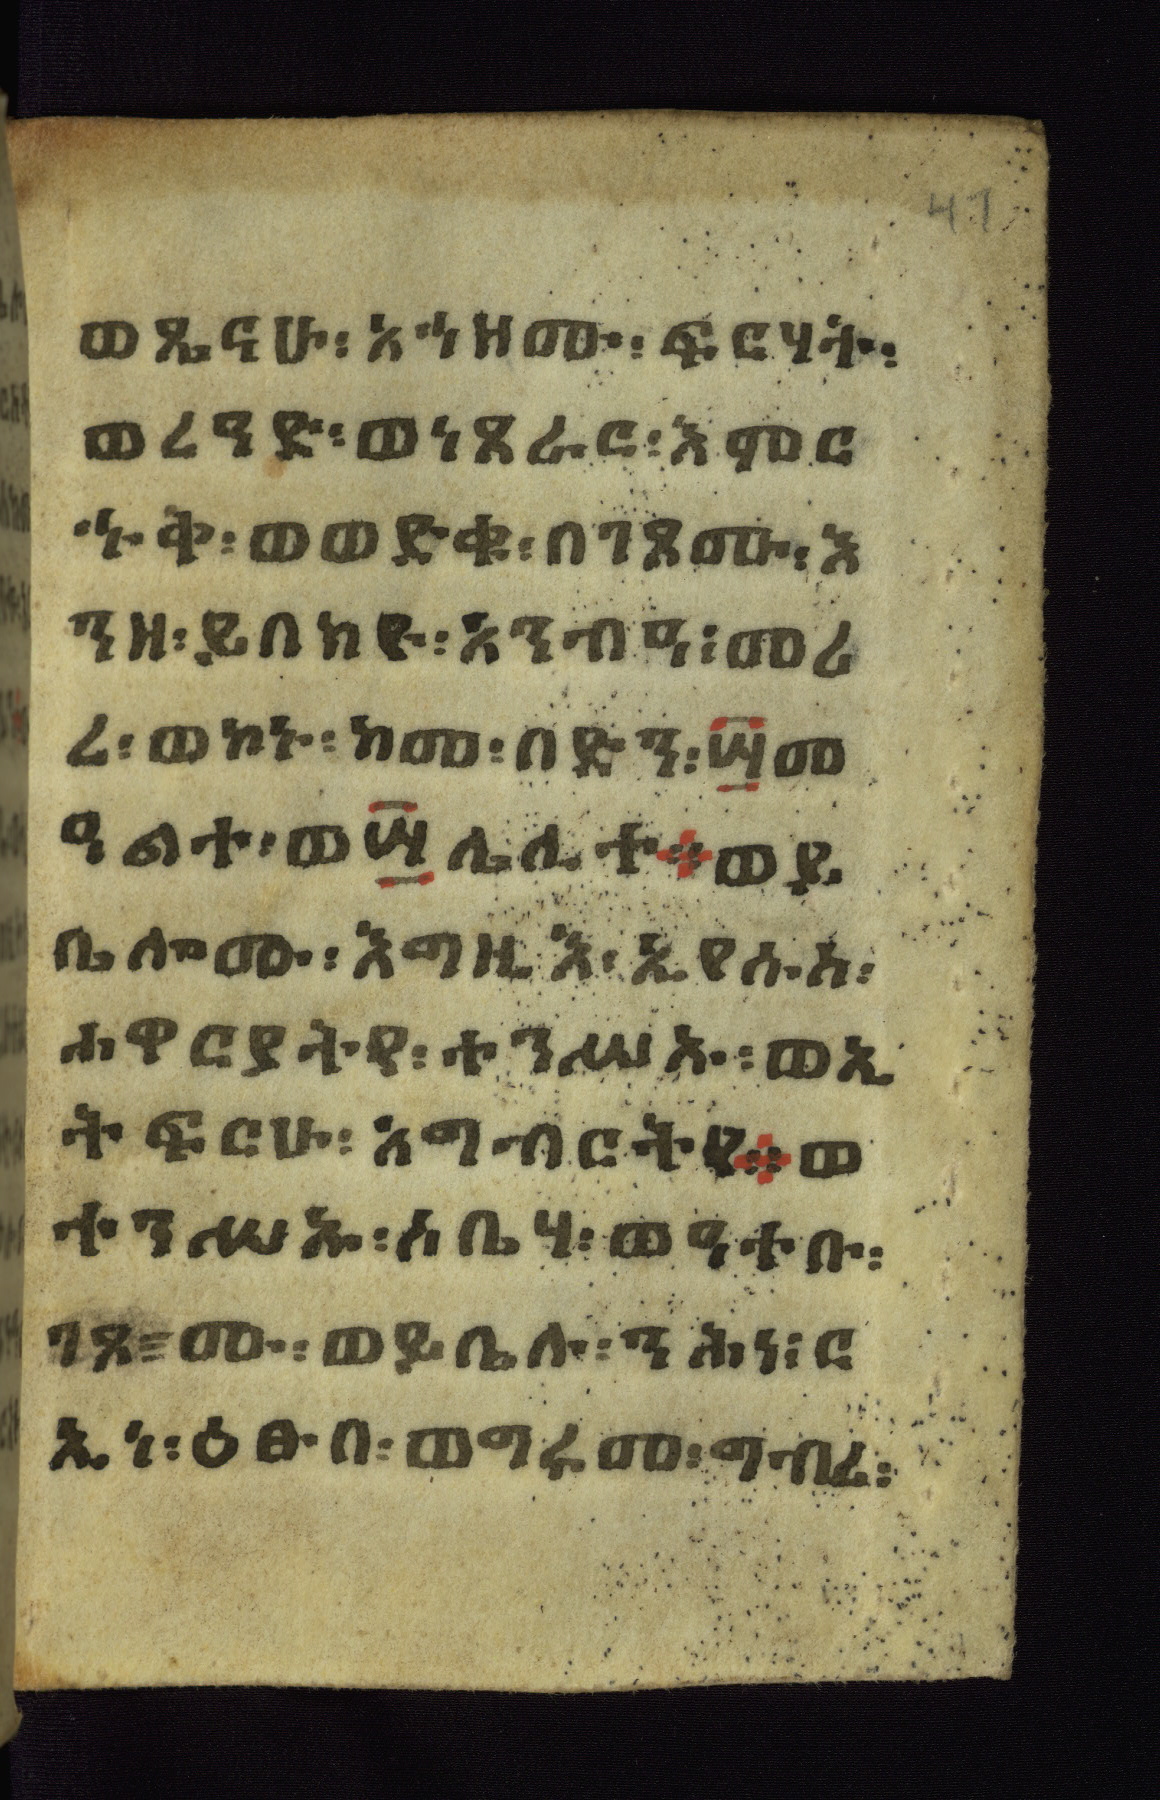 47
ወጼናሁ፡ አኀዘሙ፡ ፍርሃት፡
ወረዓድ፡ ወነጸራር፡ እምር
ኁቅ፡ ወወድቁ፡ በገጾሙ፡ እ
ንዘ፡ ይበክዩ፡ አንብዓ፡ መሪ
ረ፡ ወኮኑ፡ ከመ፡ በድን፡ ፫መ
ዓልተ፡ ወ፫ሌሊተ ። ወይ
ቤሎሙ፡ እግዚእ፡ ኢየሱስ፡
ሐዋርያትየ፡ ተንሥኡ፡ ወኢ
ትፍርሁ፡ አግብርትየ ። ወ
ተንሥኡ፡ ሶቤሃ፡ ወዓተቡ፡
ገጾሙ፡ ወይቤሉ፡ ንሕነ፡ ር
ኢነ፡ ዕፁበ፡ ወግሩመ፡ ግብረ፡